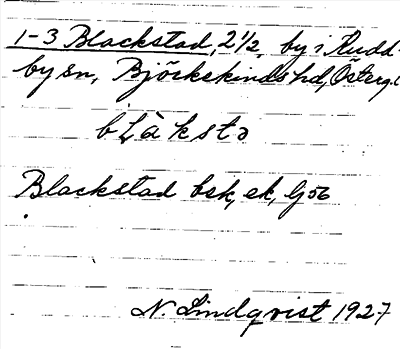 1-3 Blackstad, 2 1/2, by i Rudd-
by sn, Björkekinds hd, Österg.
blàkstə
Blackstad bsk, ek, Gj 56
N. Lindqvist 1927